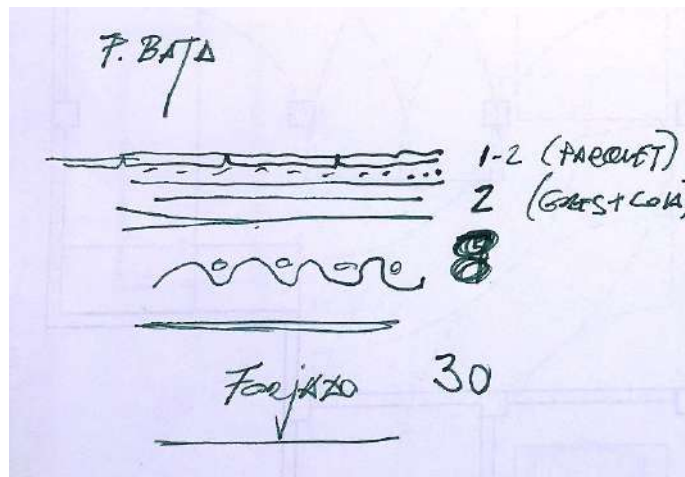 P. BAJA
1-2 (PARQUET)
2 (GRES + COLA)
8
Forjado 30